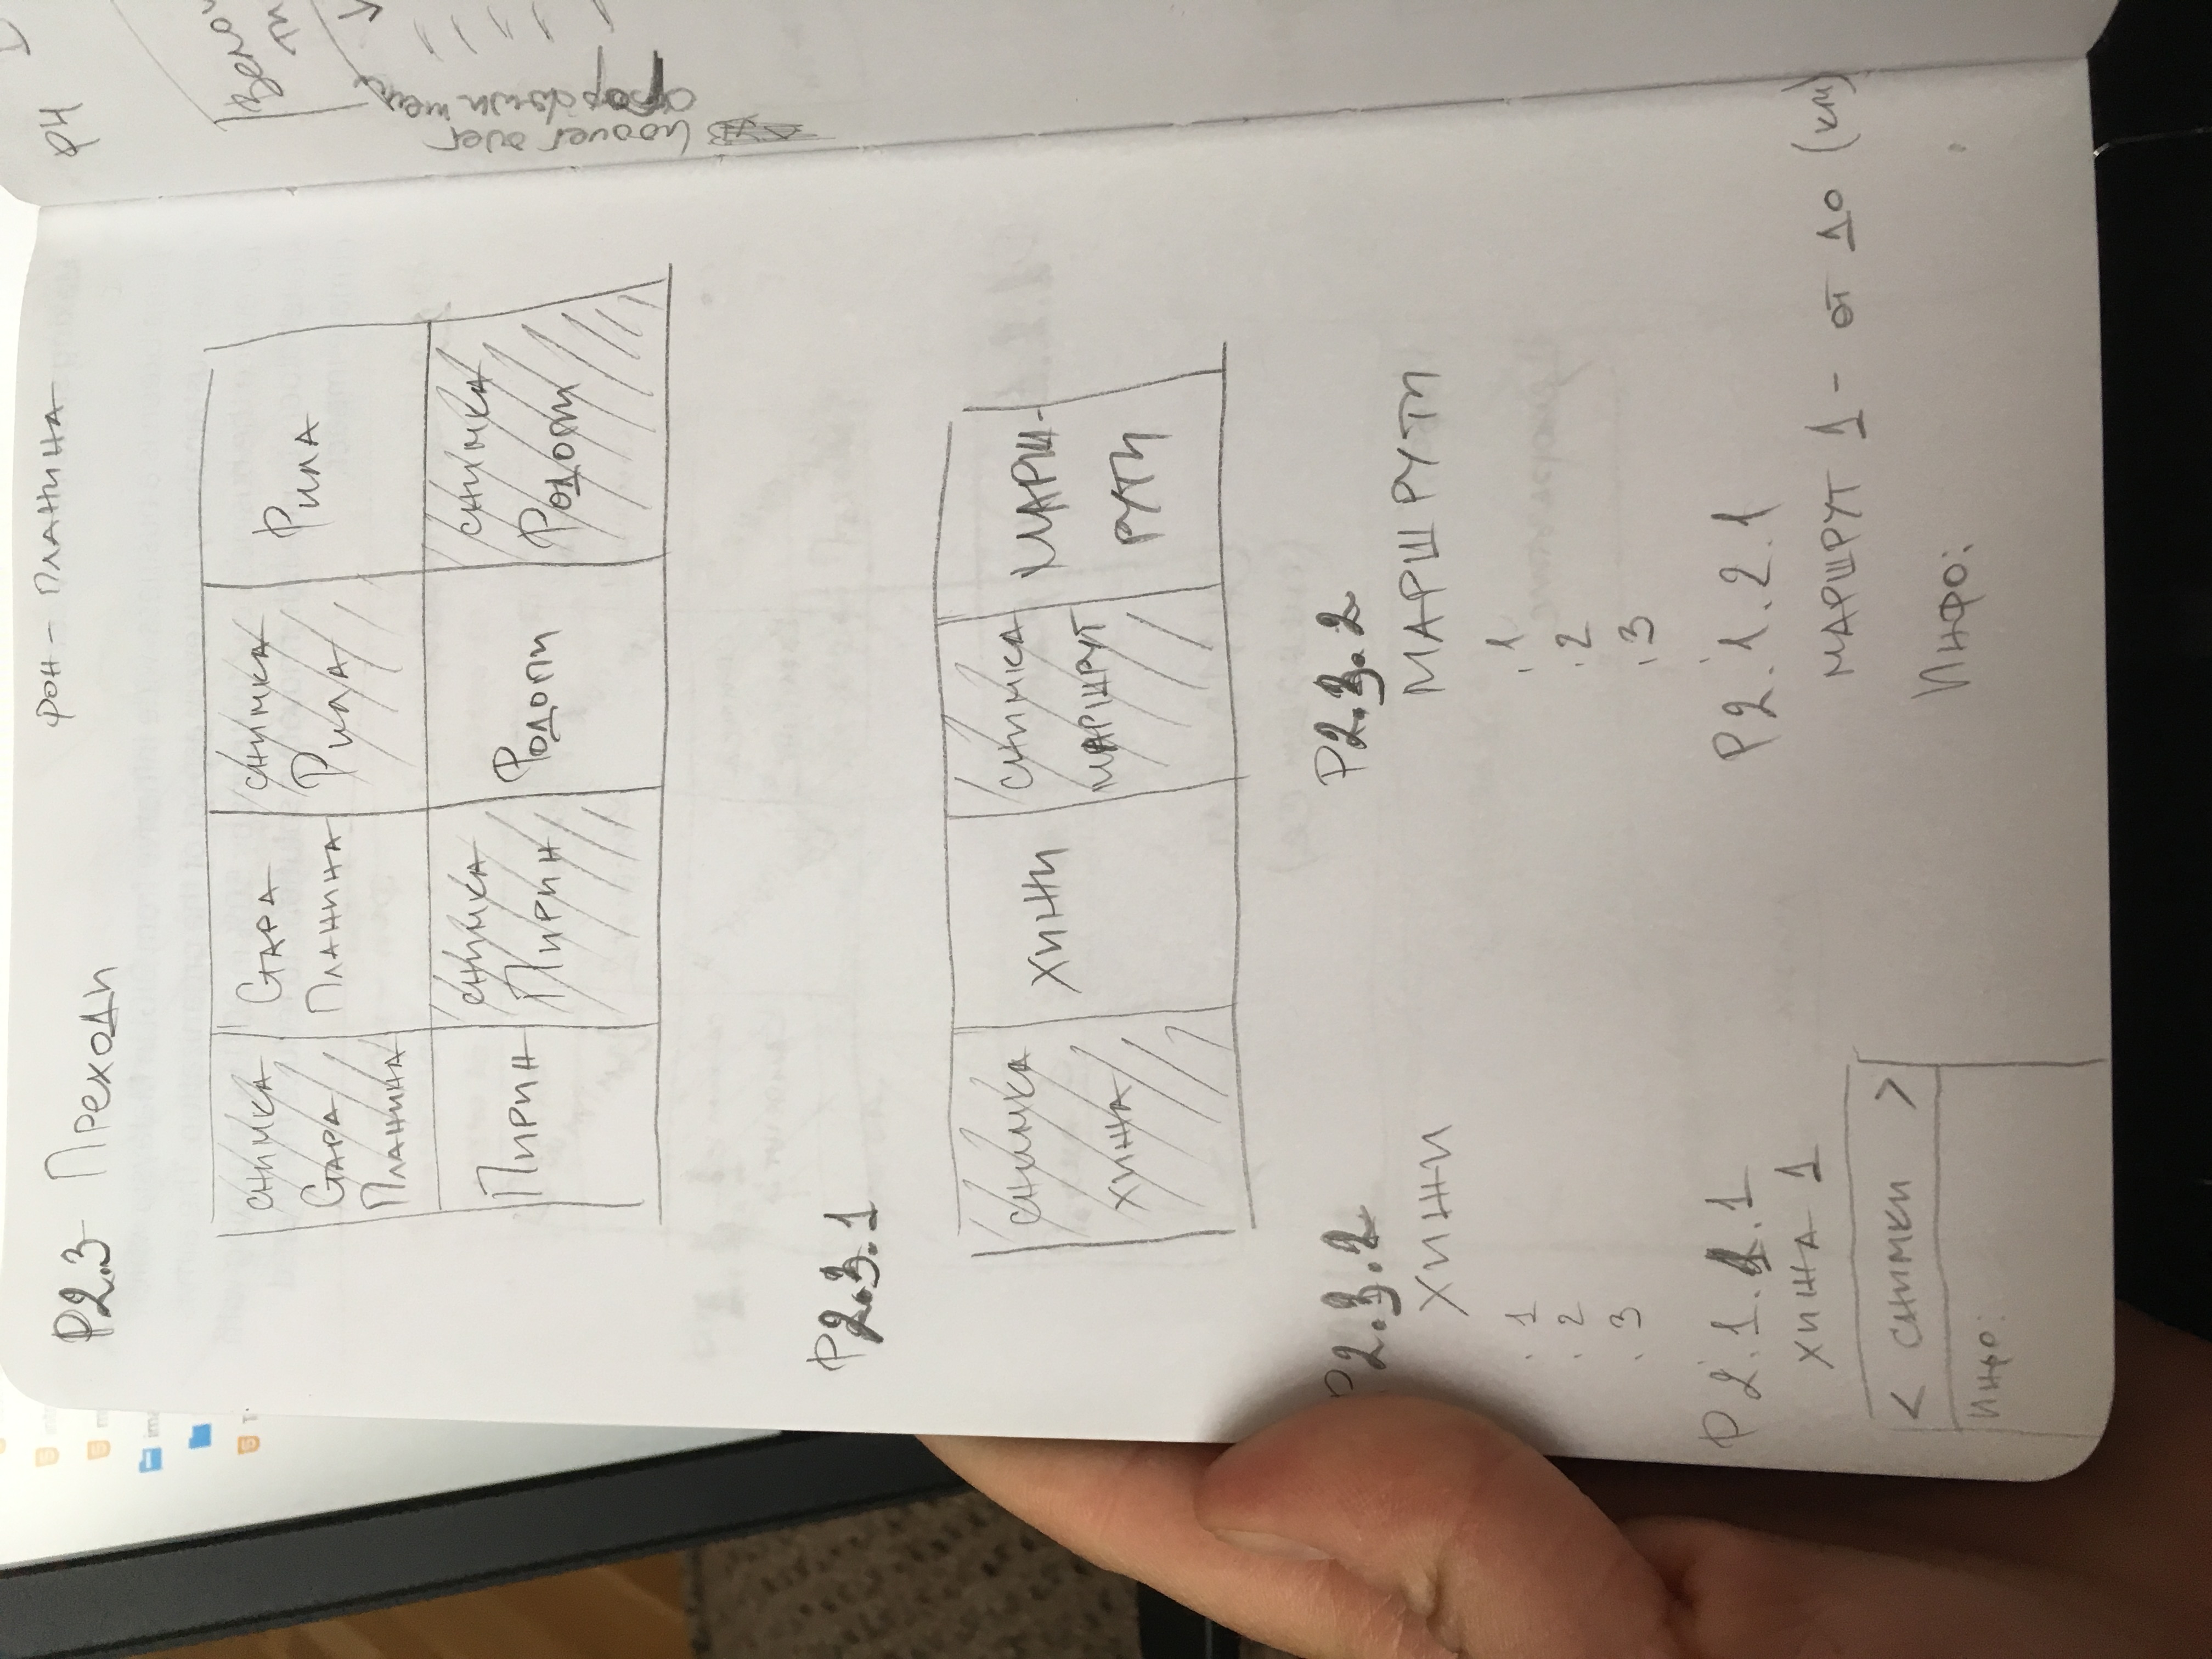 P2.3 Преходи
фон - планина
снимка
Стара
Планина
Стара
Планина
снимка
Рила
Рила
Пирин
снимка
Пирин
Родопи
снимка
Родопи
P2.3.1
снимка
хижа
хижи
снимка
маршрут
марш-
рути
P2.3.2
хижи
. 1
. 2
. 3
P2.3.2
маршрути
. 1
. 2
. 3
P2.1.1.1
хижа 1
< снимки >
Инфо:
P2.1.2.1
маршрут 1 - от до (км)
Инфо:
P4
(hover over